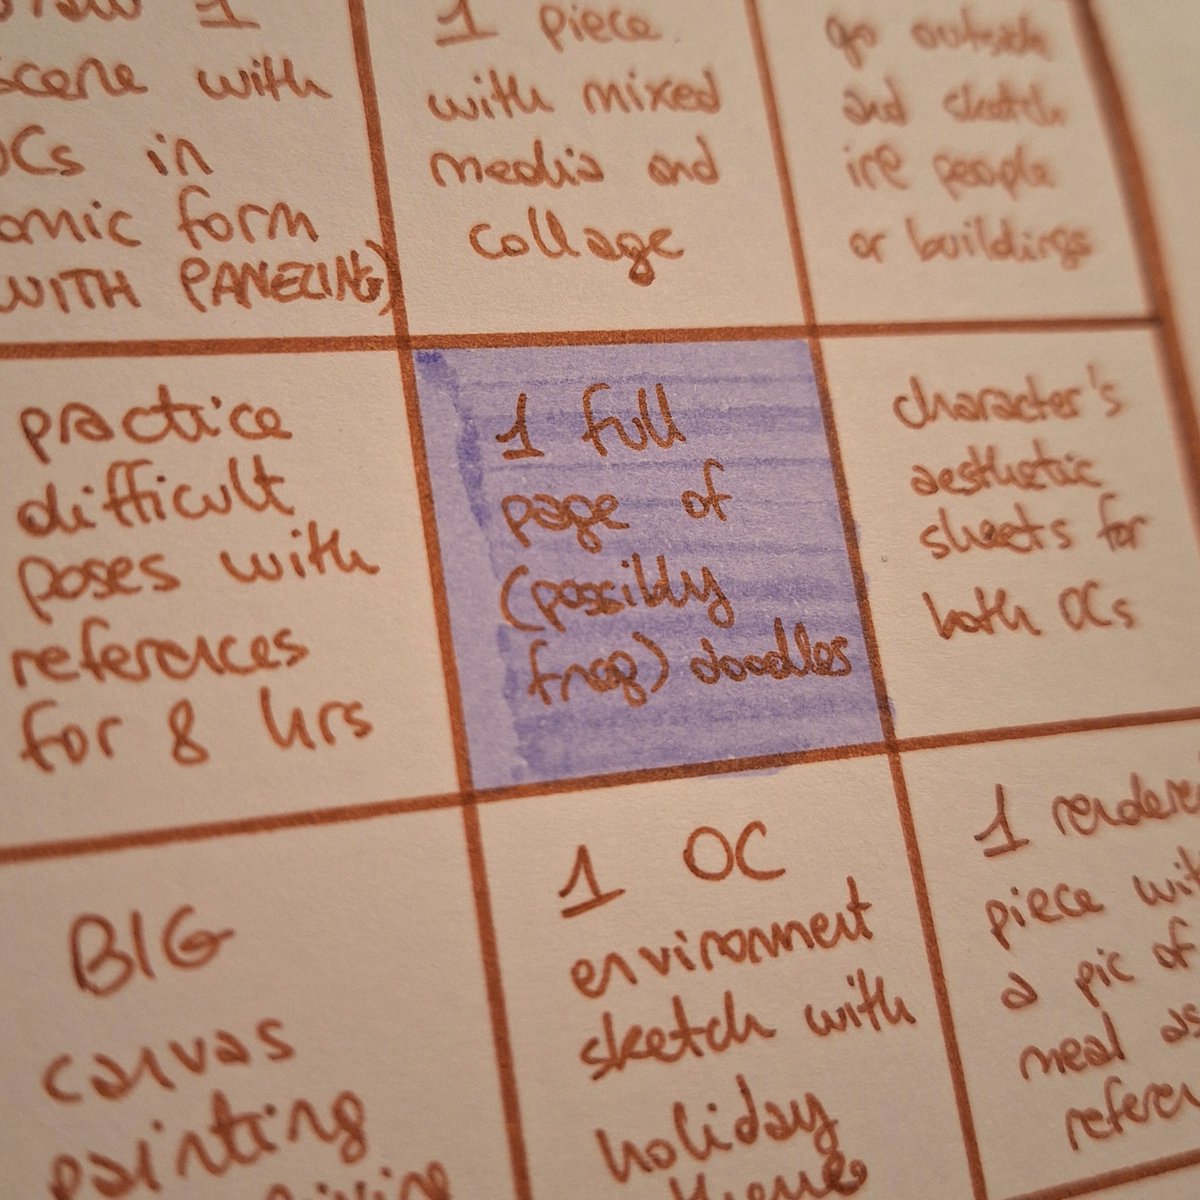 draw 1
scene with
OCs in
comic form
WITH PANELING)
1 piece
with mixed
media and
collage
go outside
and sketch
irl people
or buildings
practice
difficult
poses with
references
for 8 hrs
1 full
page of
(possibly
frog) doodles
character's
aesthetic
sheets for
both OCs
BIG
canvas
painting
1 OC
environment
sketch with
holiday
theme
1 rendered
piece with
a pic of
meal as
reference